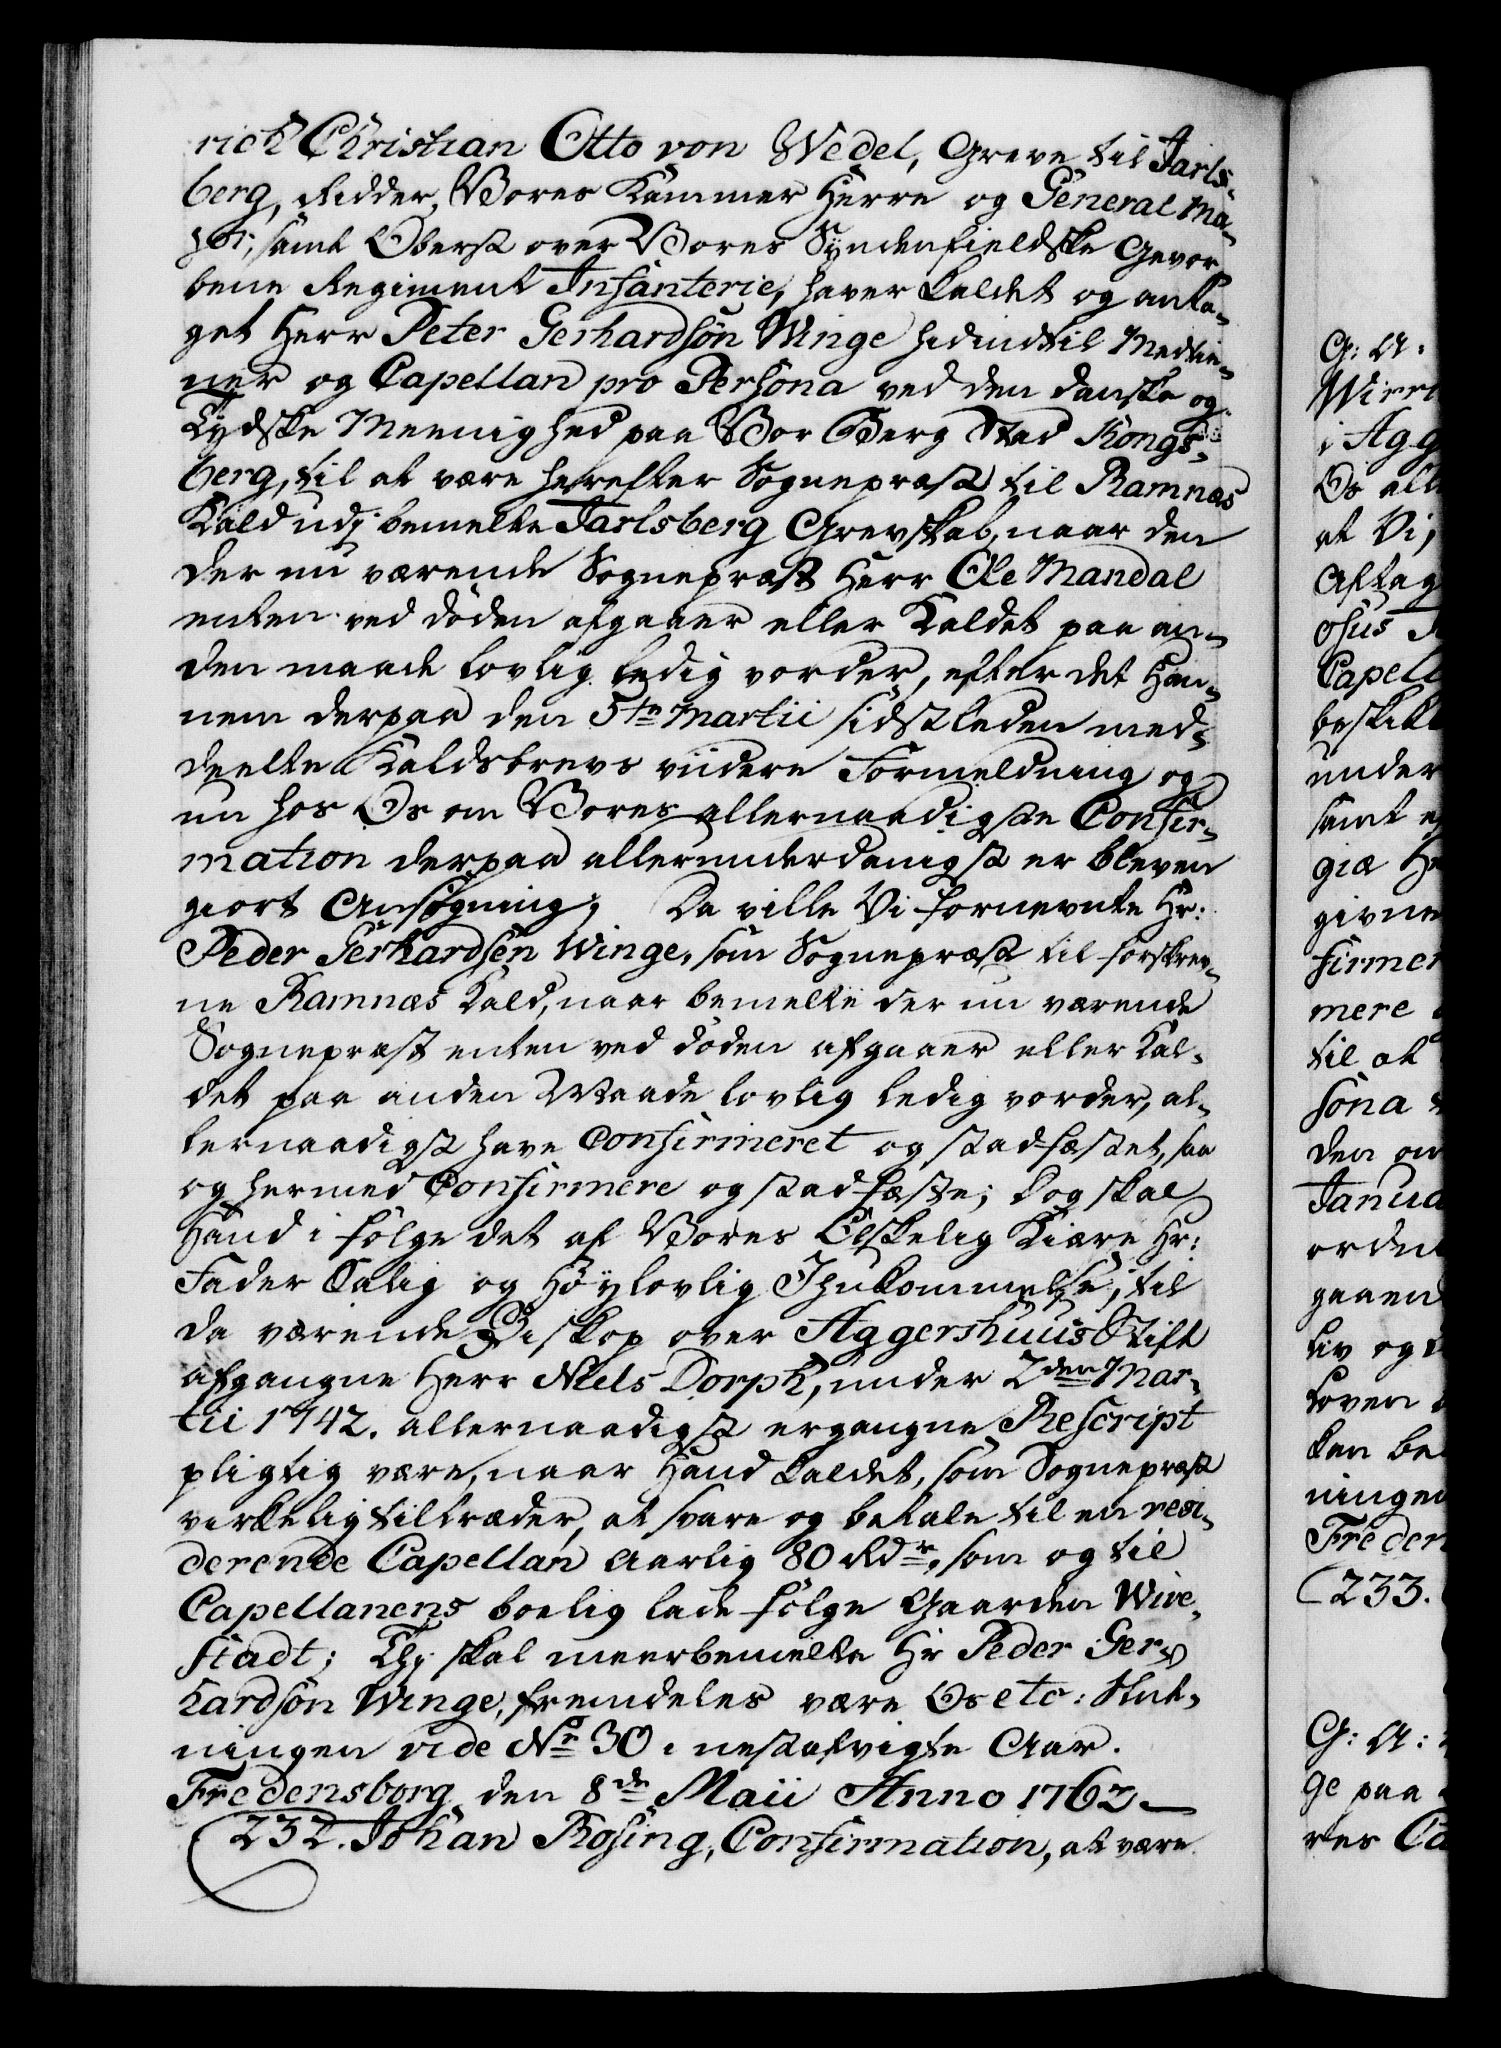 rich Christian Otto von Wedel, Greve til Jarls-
berg, Ridder, Vores Kammer Herre og General Ma-
jor, samt Oberst over Vores Syndenfieldske Gevor-
bene Regiment Infanterie, haver kaldet og anta-
get Herr Peter Gerhardsön Winge hidindtil Medtie-
ner og Capellan pro Persona ved den danske og
Tydske Meenighed paa Vor Berg Stad Kongs-
berg, til at være herefter Sognepræst til Ramnæs
Kald udj bemelte Jarlsberg Grevskab, naar den
der nu værende Sognepræst Herr Ole Mandal
enten ved döden afgaaer eller Kaldet paa an-
den maade lovlig ledig vorder, efter det Han-
nem derpaa den 5te Martii sidstleden med-
deelte Kaldsbrevs viidere Formeldning og
nu hos Os om Vores allernaadigste Confir-
mation derpaa allerunderdanigst er bleven
giort Ansögning; Da ville Vi fornevnte Hr:
Peder Gerhardsen Winge, som Sognepræst til forskrev-
ne Ramnæs Kald, naar bemelte der nu værende
Sognepræst enten ved döden afgaaer eller Kal-
det paa anden Maade lovlig ledig vorder, al-
lernaadigst have Confirmeret og stadfæstet, saa
og hermed Confirmere og stadfæste; Dog skal
Hand i fölge det af Vores Elskelig Kiære Hr:
Fader Salig og Höylovlig Ihukommelse, til
da værende Biskop over Aggershuus Stift
afgangne Herr Niels Dorph, under 2den Mar-
tii 1742. allernaadigst ergangne Rescript
pligtig være, naar Hand Kaldet, som Sognepræst
virkelig tiltræder, at svare og betale til en resi-
derende Capellan Aarlig 80 Rdr, som og til
Capellanens boelig lade fölge Gaarden Wive-
stadt; Thj skal meerbemelte Hr Peder Ger-
hardsön Winge, fremdeles være Os etc: Slut-
ningen vide No 30 i nestafvigte Aar.
Fredensborg den 8de Maii Anno 1762
232. Johan Rosing, Confirmation, at være
G: A:
Wirr
i Agg
Os all
at Vi,
Aftag
osus
Capell
beskik
under
samt
giæ
givne
firmer
mere
til at
sona
den
Janua
orden
gaaen
liv og
Loven
ken be
ningen
Freden
233.
G: A:
ge paa
res Ca